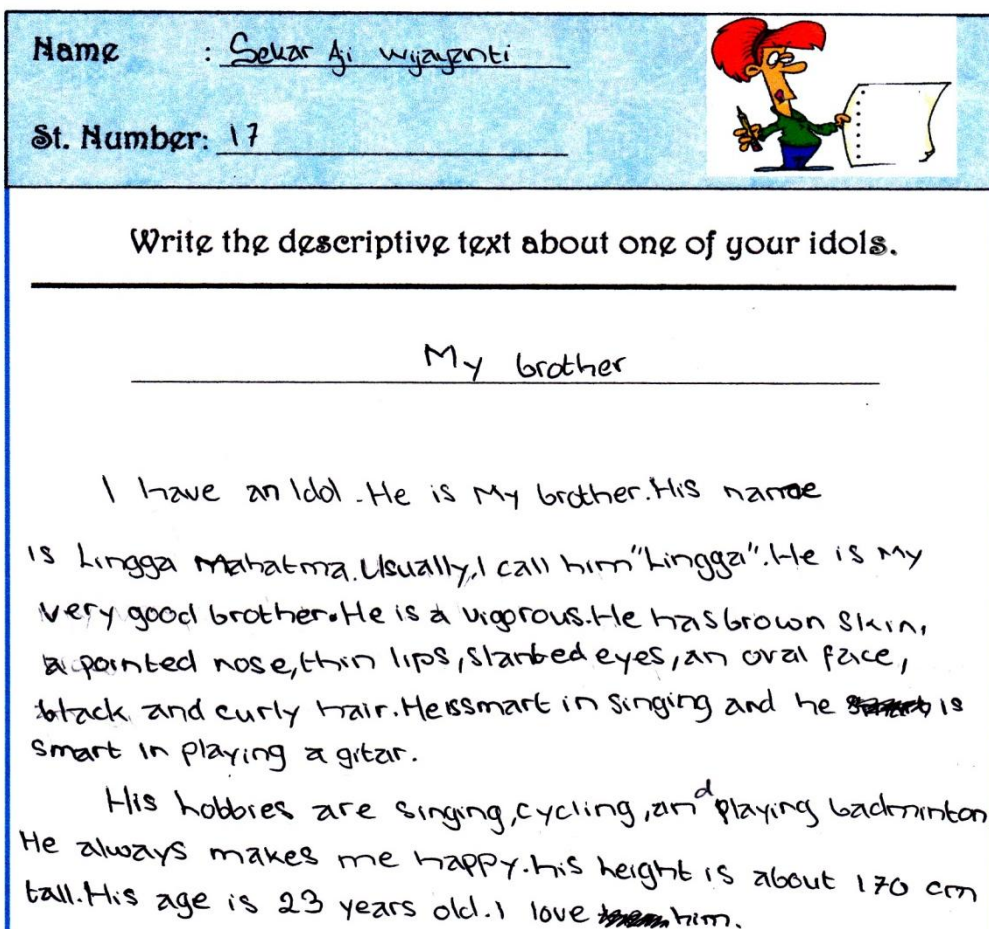 Name : Sekar Aji Wijayanti
St. Number: 17
Write the descriptive text about one of your idols.
My brother
I have an Idol. He is My brother. His name
is Lingga Mahatma. Usually, I call him "Lingga". He is My
very good brother. He is a vigorous. He has brown skin,
a pointed nose, thin lips, slanted eyes, an oval face,
black and curly hair. He is smart in singing and he is
smart in playing a gitar.
His hobbies are singing, cycling, and playing badminton
He always makes me happy. his height is about 170 cm
tall. His age is 23 years old. I love him.